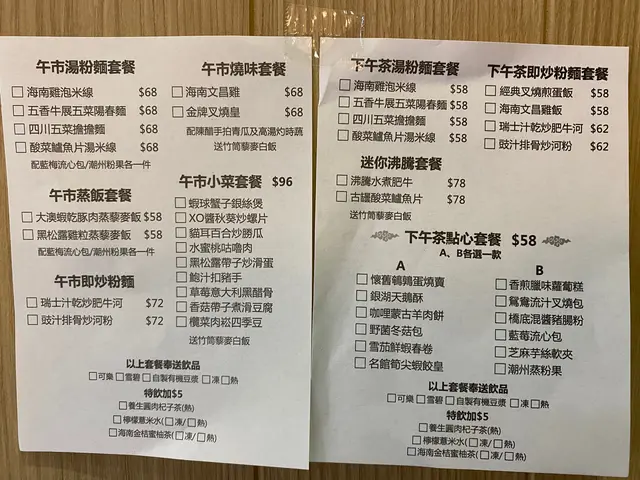 午市湯粉麵套餐
海南雞泡米線 $68
五香牛展五菜陽春麵 $68
四川五菜擔擔麵 $68
酸菜鱸魚片湯米線 $68
配藍梅流心包/潮州粉果各一件
午市蒸飯套餐
大澳蝦乾豚肉蒸藜麥飯 $58
黑松露雞粒蒸藜麥飯 $58
配藍梅流心包/潮州粉果各一件
午市即炒粉麵
瑞士汁乾炒肥牛河 $72
豉汁排骨炒河粉 $72
午市燒味套餐
海南文昌雞 $68
金牌叉燒皇 $68
配陳醋手拍青瓜及高湯灼時蔬
送竹筒藜麥白飯
午市小菜套餐 $96
蝦球蟹子銀絲煲
XO醬秋葵炒螺片
貓耳百合炒勝瓜
水蜜桃咕嚕肉
黑松露帶子炒滑蛋
鮑汁扣豬手
草莓意大利黑醋骨
香菇帶子煮滑豆腐
欖菜肉崧四季豆
送竹筒藜麥白飯
以上套餐奉送飲品
可樂 雪碧 自製有機豆漿 凍 熱
特飲加$5
養生圓肉杞子茶(熱)
檸檬薏米水(凍/熱)
海南金桔蜜柚茶(凍/熱)
下午茶湯粉麵套餐
海南雞泡米線 $58
五香牛展五菜陽春麵 $58
四川五菜擔擔麵 $58
酸菜鱸魚片湯米線 $58
下午茶即炒粉麵套餐
經典叉燒煎蛋飯 $58
海南文昌雞飯 $58
瑞士汁乾炒肥牛河 $62
豉汁排骨炒河粉 $62
迷你沸騰套餐
沸騰水煮肥牛 $78
古謹酸菜鱸魚片 $78
送竹筒藜麥白飯
下午茶點心套餐 $58
A、B各選一款
A
懷舊鵪鶉蛋燒賣
銀湖天鵝酥
咖哩蒙古羊肉餅
野菌冬菇包
雪茄鮮蝦春卷
名館筍尖蝦餃皇
B
香煎臘味蘿蔔糕
鴛鴦流汁叉燒包
橋底混醬豬腸粉
藍莓流心包
芝麻芋絲軟夾
潮州蒸粉果
以上套餐奉送飲品
可樂 雪碧 自製有機豆漿 凍 熱
特飲加$5
養生圓肉杞子茶(熱)
檸檬薏米水(凍/熱)
海南金桔蜜柚茶(凍/熱)